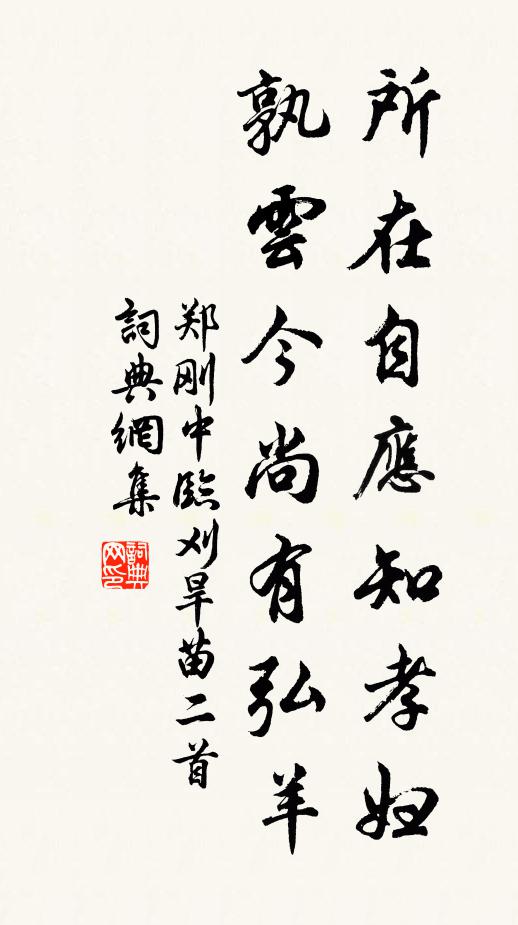 所在自應知孝婦
孰雲今尚有弘羊
郑刚中臨刈旱苗二首
詞典網集
詞典网印